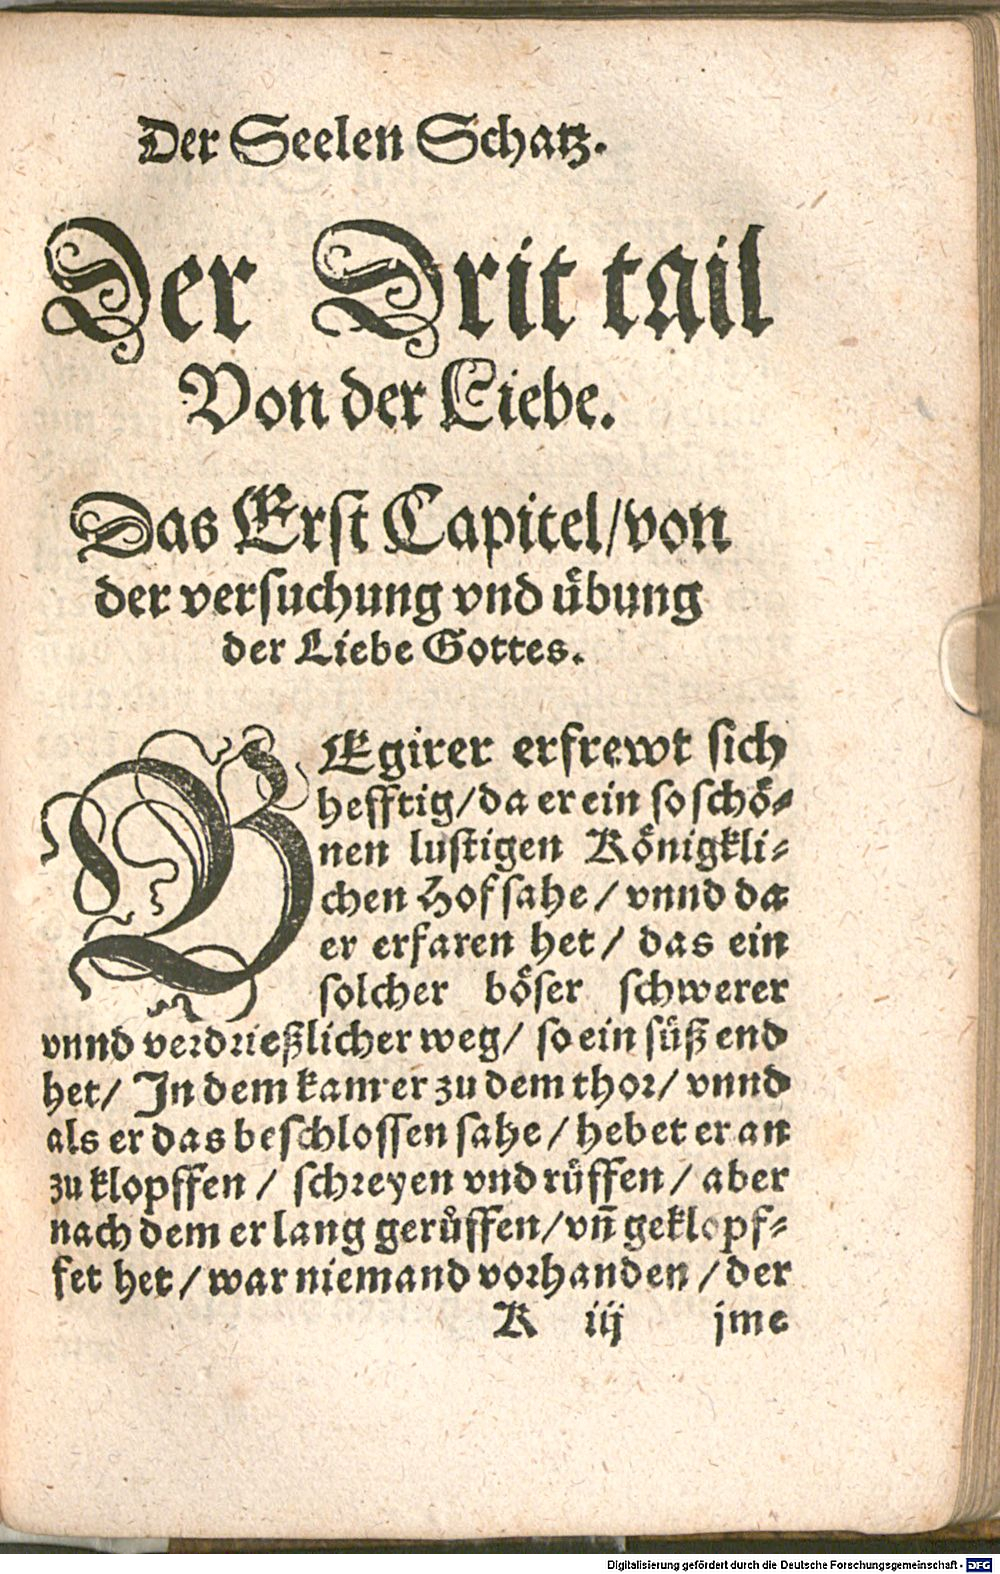 Der Seelen Schatz.
Der Drit tail
Von der Liebe.
Das Erst Capitel/von
der versuchung vnd übung
der Liebe Gottes.
BEgirer erfrewt sich
hefftig/da er ein so schö-
nen lustigen Königkli-
chen Hof sahe / vnnd da
er erfaren het / das ein
solcher böser schwerer
vnnd verdrießlicher weg/ so ein süß end
het/ In dem kam er zu dem thor/ vnnd
als er das beschlossen sahe / hebet er an
zu klopffen / schreyen vnd rüffen / aber
nach dem er lang gerůffen/vn̄ geklopf-
fet het / war niemand vorhanden / der
K iij jme
Digitalisierung gefördert durch die Deutsche Forschungsgemeinschaft - DFG